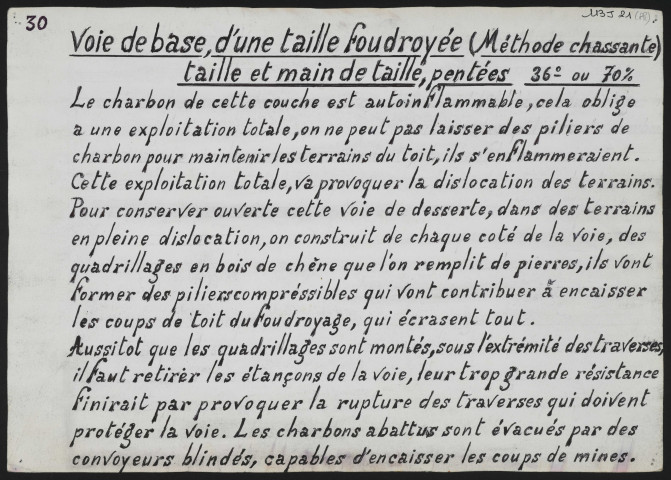 30
113 J 21
Voie de base, d'une taille foudroyée (Méthode chassante)
taille et main de taille, pentées 36° ou 70%
Le charbon de cette couche est autoinflammable, cela oblige
a une exploitation totale, on ne peut pas laisser des piliers de
charbon pour maintenir les terrains du toit, ils s'enflammeraient.
Cette exploitation totale, va provoquer la dislocation des terrains.
Pour conserver ouverte cette voie de desserte, dans des terrains
en pleine dislocation, on construit de chaque coté de la voie, des
quadrillages en bois de chêne que l'on remplit de pierres, ils vont
former des piliers compréssibles qui vont contribuer à encaisser
les coups de toit du foudroyage, qui écrasent tout.
Aussitot que les quadrillages sont montés, sous l'extrémité des traverses,
il faut retirer les étançons de la voie, leur trop grande résistance
finirait par provoquer la rupture des traverses qui doivent
protéger la voie. Les charbons abattus sont évacués par des
convoyeurs blindés, capables d'encaisser les coups de mines.